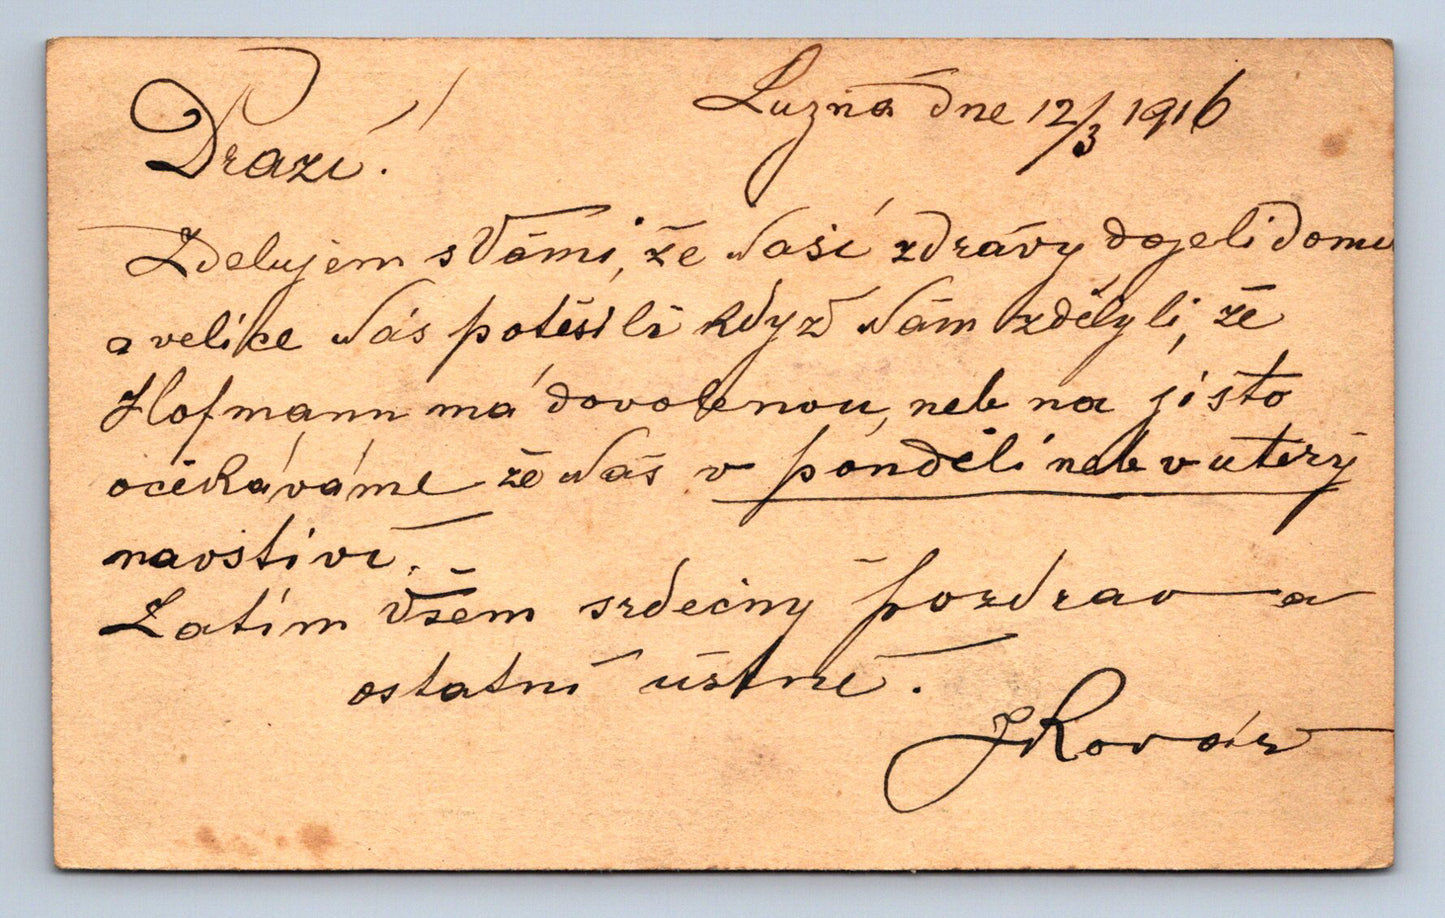 Lužná dne 12/3 1916
Drazí!
Zdelujem s Vámi, že Naší zdrávy dojeli domu
a velice Nás potěsili když Nám zdělyli, že
Hofmann má dovolenou, neb na jisto
očekáváme že Nás v pondělí neb v uterý
navstiví.
Zatím Všem srdečný pozdrav a
ostatní ústně.
JKovár